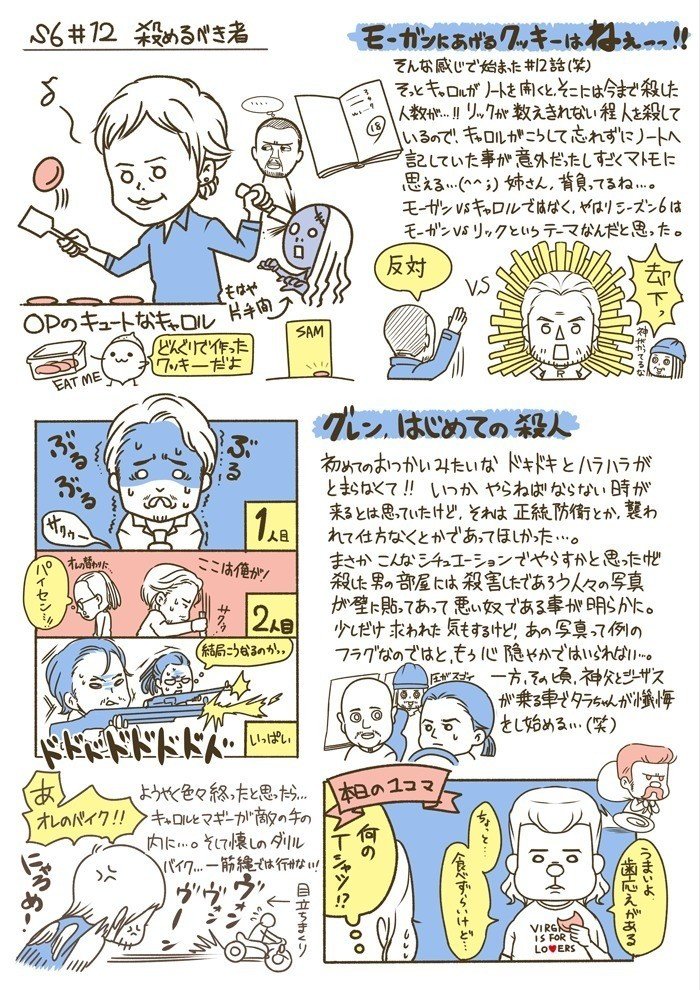 S6#12 殺めるべき者
モーガンにあげるクッキーはねぇーっ!!
そんな感じで始まった#12話(笑)
そっとキャロルがノートを開くと、そこには今まで殺した
人数が…!! リックが数えきれない程人を殺して
いるので、キャロルがこうして忘れずにノートへ
記していた事が意外だったしすごくマトモに
思える…(^^;) 姉さん、背負ってるね…。
モーガンVSキャロルではなく、やはりシーズン6は
モーガンVSリックというテーマなんだと思った。
18
もはや
片手間
OPのキュートなキャロル
EAT ME
どんぐりで作った
クッキーだよ
SAM
反対
V.S
却下。
神がかってるな
ぶるぶる
ぶるぶる
サクッ
1人目
オレの替わりに
パイセン…!
ここは俺が!
サクッ
2人目
結局こうなるのかっ
ドドドドドドド
いっぱい
グレン、はじめての殺人
初めてのおつかいみたいな ドキドキとハラハラが
とまらなくて!! いつか、やらねばならない時が
来るとは思っていたけど、それは正統防衛とか、襲わ
れて仕方なくとかであってほしかった…。
まさかこんなシチュエーションでやらすかと思ったけど
殺した男の部屋には殺害したであろう人々の写真
が壁に貼ってあって悪い奴である事が明らかに。
少しだけ救われた気もするけど、あの写真って例の
フラグなのではと、もう心穏やかではいられない…。
一方、その頃、神父とジーザス
が乗る車でタラちゃんが懺悔
をし始める…(笑)
あ
オレのバイク!!
にゃろめー!
ようやく色々終ったと思ったら…
キャロルとマギーが敵の手の
内に…。そして懐しのダリル
バイク…一筋縄では行かない!
ヴォンヴォーン
目立ちまくり
本日の1コマ
何の
Tシャツ!?
ちょっと…
食べずらいけど…
うまいよ、
歯応えがある
VIRG
IS FOR
LOVERS